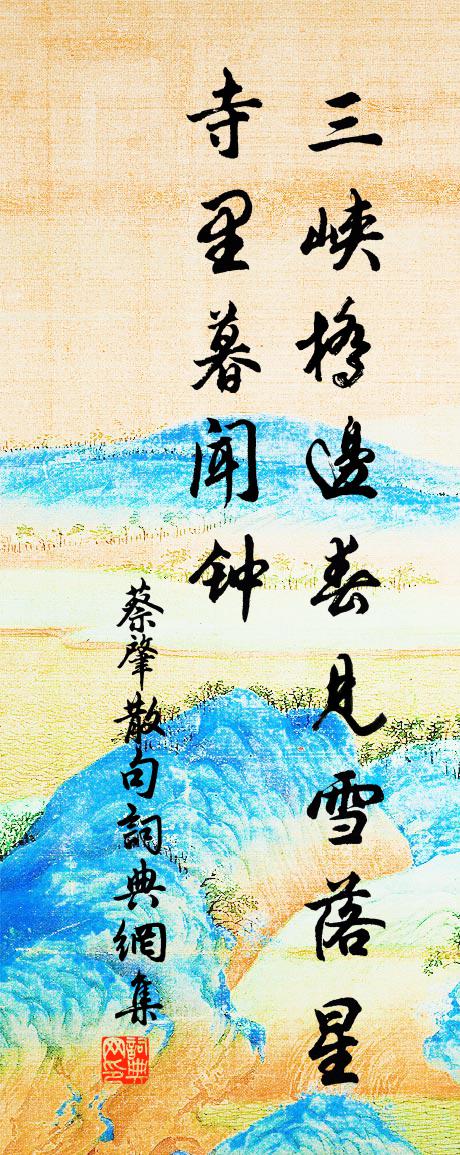 三峡橋邊春見雪落星
寺里暮闻钟
蔡肇散句詞典網集
詞典网印